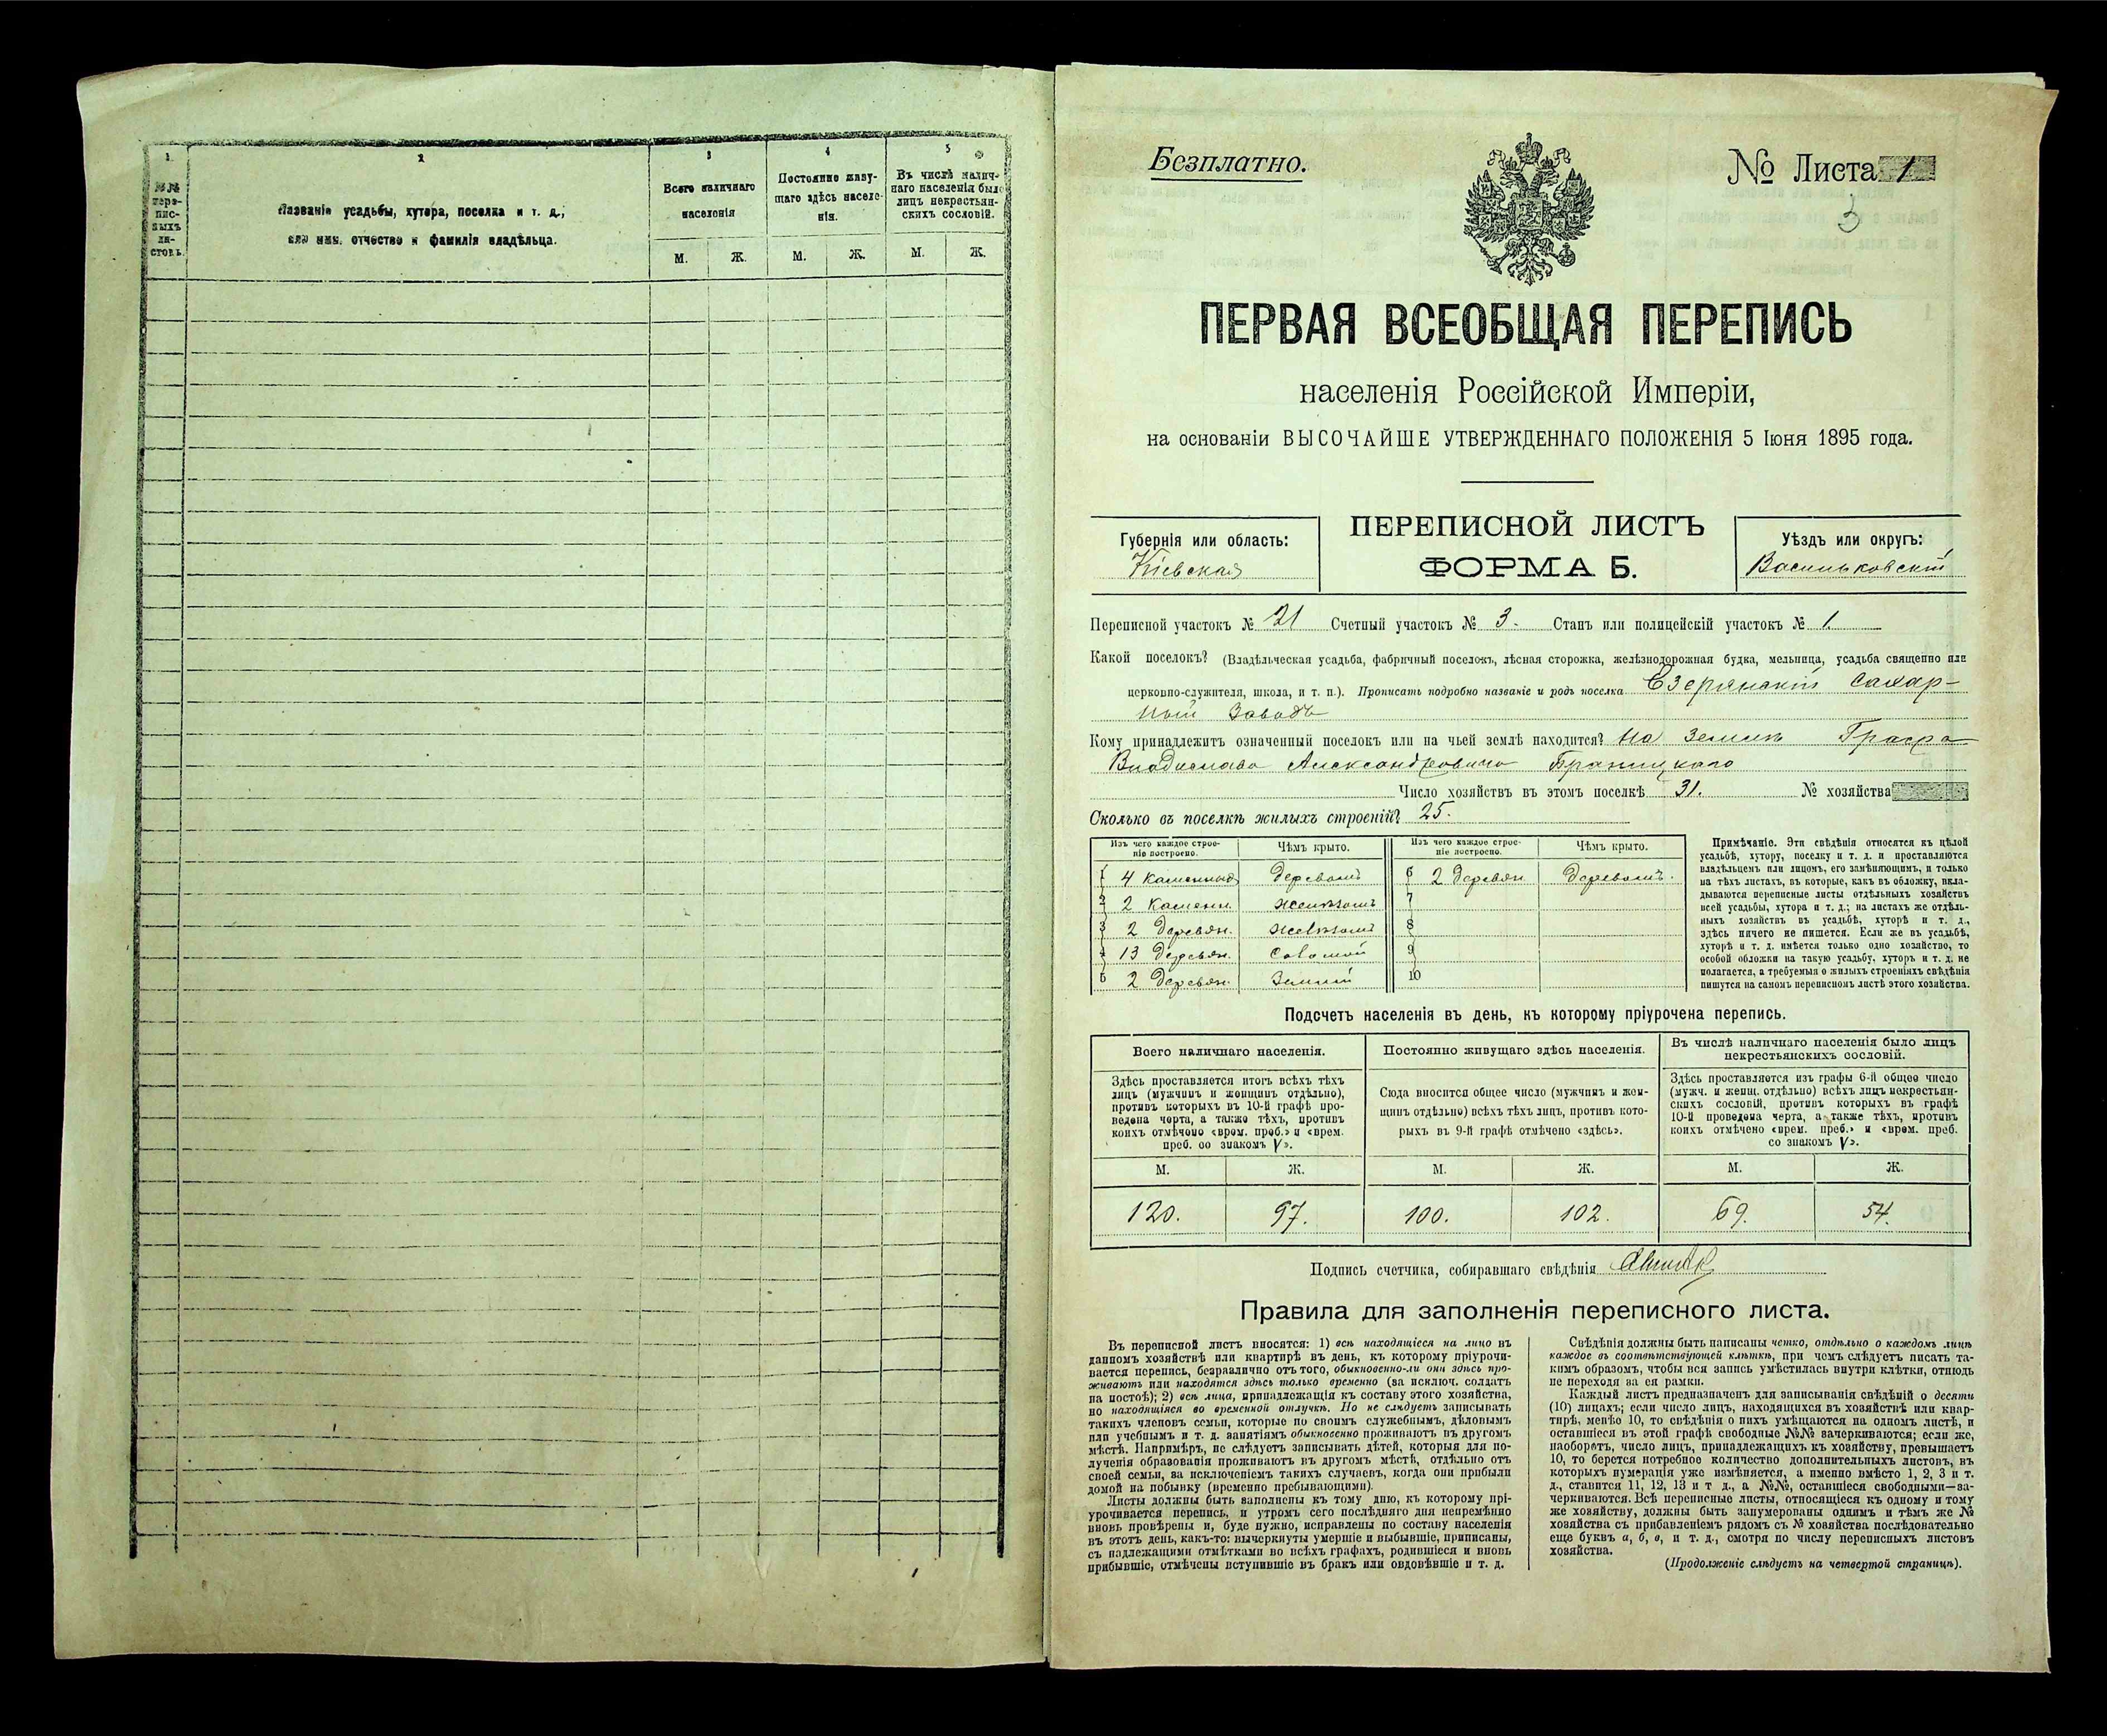 1
2
3
4
5
№№ пере-
пис-
ныхъ
ли-
стовъ.
Названіе усадьбы, хутора, поселка и т. д.,
или имя, отчество и фамилія владѣльца.
Всего наличнаго
населенія
Постоянно живу-
щаго здѣсь населе-
нія.
Въ числѣ налич-
наго населенія было
лицъ некрестьян-
скихъ сословій.
М. Ж. М. Ж. М. Ж.
Безплатно.
№ Листа 1
3
ПЕРВАЯ ВСЕОБЩАЯ ПЕРЕПИСЬ
населенія Россійской Имперіи,
на основаніи ВЫСОЧАЙШЕ УТВЕРЖДЕННАГО ПОЛОЖЕНІЯ 5 Іюня 1895 года.
Губернія или область:
Кіевская
ПЕРЕПИСНОЙ ЛИСТЪ
ФОРМА Б.
Уѣздъ или округъ:
Васильковскій
Переписной участокъ № 21 Счетный участокъ № 3. Станъ или полицейскій участокъ № 1.
Какой поселокъ? (Владѣльческая усадьба, фабричный поселокъ, лѣсная сторожка, желѣзнодорожная будка, мельница, усадьба священно или
церковно-служителя, школа, и т. п.). Прописать подробно названіе и родъ поселка Езерянскій Сахар-
ный Заводъ
Кому принадлежитъ означенный поселокъ или на чьей землѣ находится? На Землѣ Графа
Владислава Александровича Браницкаго
Число хозяйствъ въ этомъ поселкѣ 31. № хозяйства
Сколько въ поселкѣ жилыхъ строеній? 25.
Изъ чего каждое строе-
ніе построено.
Чѣмъ крыто.
Изъ чего каждое строе-
ніе построено.
Чѣмъ крыто.
1 4 Каменные Деревомъ 6 2 Деревян. Деревомъ.
2 2 Каменн. Желѣзомъ 7
3 2 Деревян. Желѣзомъ 8
4 13 Деревян. Соломой 9
5 2 Деревян. Землей 10
Примѣчаніе. Эти свѣдѣнія относятся къ цѣлой
усадьбѣ, хутору, поселку и т. д. и проставляются
владѣльцемъ или лицомъ, его замѣняющимъ, и только
на тѣхъ листахъ, въ которые, какъ въ обложку, вкла-
дываются переписные листы отдѣльныхъ хозяйствъ
всей усадьбы, хутора и т. д.; на листахъ же отдѣль-
ныхъ хозяйствъ въ усадьбѣ, хуторѣ и т. д.,
здѣсь ничего не пишется. Если же въ усадьбѣ,
хуторѣ и т. д. имѣется только одно хозяйство, то
особой обложки на такую усадьбу, хуторъ и т. д. не
полагается, а требуемыя о жилыхъ строеніяхъ свѣдѣнія
пишутся на самомъ переписномъ листѣ этого хозяйства.
Подсчетъ населенія въ день, къ которому пріурочена перепись.
Всего наличнаго населенія.
Здѣсь проставляется итогъ всѣхъ тѣхъ
лицъ (мужчинъ и женщинъ отдѣльно),
противъ которыхъ въ 10-й графѣ про-
ведена черта, а также тѣхъ, противъ
коихъ отмѣчено «врем. преб.» и «врем.
преб. со знакомъ V».
Постоянно живущаго здѣсь населенія.
Сюда вносится общее число (мужчинъ и жен-
щинъ отдѣльно) всѣхъ тѣхъ лицъ, противъ кото-
рыхъ въ 9-й графѣ отмѣчено «здѣсь».
Въ числѣ наличнаго населенія было лицъ
некрестьянскихъ сословій.
Здѣсь проставляется изъ графы 6-й общее число
(мужч. и женщ. отдѣльно) всѣхъ лицъ некрестьян-
скихъ сословій, противъ которыхъ въ графѣ
10-й проведена черта, а также тѣхъ, противъ
коихъ отмѣчено «врем. преб.» и «врем. преб.
со знакомъ V».
М. Ж. М. Ж. М. Ж.
120. 97. 100. 102. 69. 54.
Подпись счетчика, собиравшаго свѣдѣнія
Правила для заполненія переписного листа.
Въ переписной листъ вносятся: 1) всѣ находящіеся на лицо въ
данномъ хозяйствѣ или квартирѣ въ день, къ которому пріурочи-
вается перепись, безразлично отъ того, обыкновенно-ли они здѣсь про-
живаютъ или находятся здѣсь только временно (за исключ. солдатъ
на постоѣ); 2) всѣ лица, принадлежащія къ составу этого хозяйства,
но находящіяся во временной отлучкѣ. Но не слѣдуетъ записывать
такихъ членовъ семьи, которые по своимъ служебнымъ, дѣловымъ
или учебнымъ и т. д. занятіямъ обыкновенно проживаютъ въ другомъ
мѣстѣ. Напримѣръ, не слѣдуетъ записывать дѣтей, которыя для по-
лученія образованія проживаютъ въ другомъ мѣстѣ, отдѣльно отъ
своей семьи, за исключеніемъ такихъ случаевъ, когда они прибыли
домой на побывку (временно пребывающими).
Листы должны быть заполнены къ тому дню, къ которому прі-
урочивается перепись, и утромъ сего послѣдняго дня непремѣнно
вновь провѣрены и, буде нужно, исправлены по составу населенія
въ этотъ день, какъ-то: вычеркнуты умершіе и выбывшіе, приписаны,
съ надлежащими отмѣтками во всѣхъ графахъ, родившіеся и вновь
прибывшіе, отмѣчены вступившіе въ бракъ или овдовѣвшіе и т. д.
Свѣдѣнія должны быть написаны четко, отдѣльно о каждомъ лицѣ
каждое въ соотвѣтствующей клѣткѣ, при чемъ слѣдуетъ писать та-
кимъ образомъ, чтобы вся запись умѣстилась внутри клѣтки, отнюдь
не переходя за ея рамки.
Каждый листъ предназначенъ для записыванія свѣдѣній о десяти
(10) лицахъ; если число лицъ, находящихся въ хозяйствѣ или квар-
тирѣ, менѣе 10, то свѣдѣнія о нихъ умѣщаются на одномъ листѣ, и
оставшіеся въ этой графѣ свободные №№ зачеркиваются; если же,
наоборотъ, число лицъ, принадлежащихъ къ хозяйству, превышаетъ
10, то берется потребное количество дополнительныхъ листовъ, въ
которыхъ нумерація уже измѣняется, а именно вмѣсто 1, 2, 3 и т.
д., ставится 11, 12, 13 и т д., а №№, оставшіеся свободными—за-
черкиваются. Всѣ переписные листы, относящіеся къ одному и тому
же хозяйству, должны быть занумерованы однимъ и тѣмъ же №
хозяйства съ прибавленіемъ рядомъ съ № хозяйства послѣдовательно
еще буквъ а, б, в, и т. д., смотря по числу переписныхъ листовъ
хозяйства.
(Продолженіе слѣдуетъ на четвертой страницѣ).